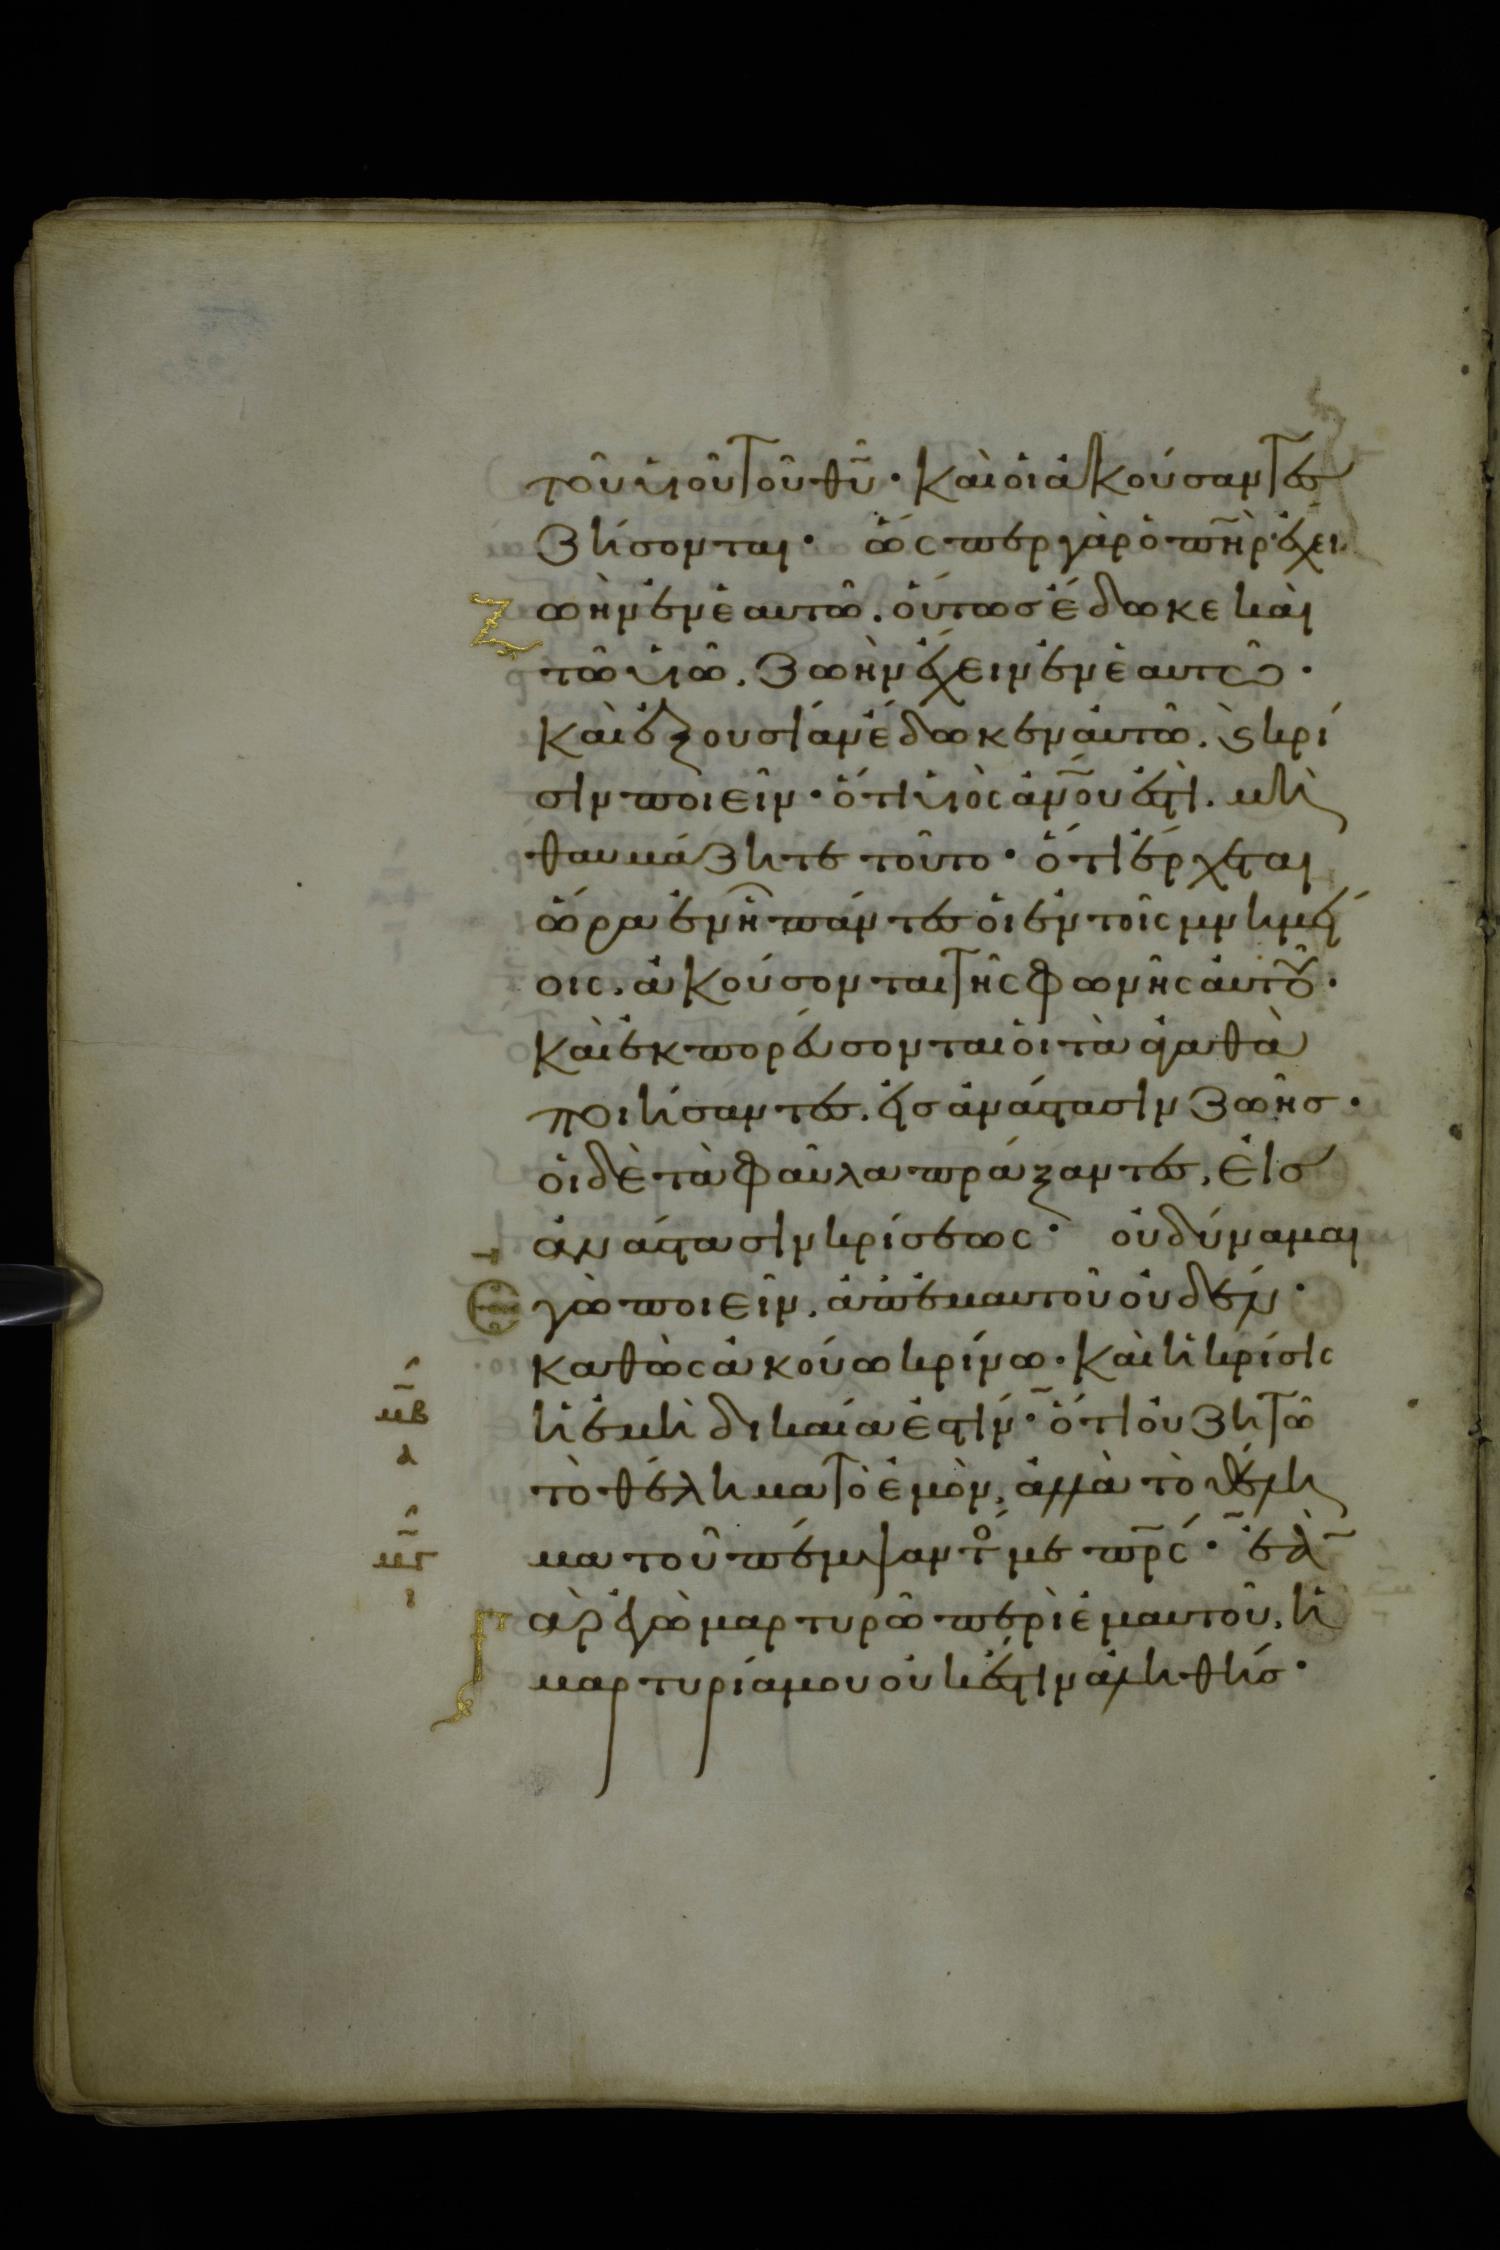 τοῦ υἱοῦ τοῦ θῦ· καὶ οἱ ἀκούσαντες
ζήσονται· ὥσπερ γὰρ ὁ πῆρ ἔχει
ζωὴν ἐν ἑαυτῶ. οὕτως ἔδωκε καὶ
τῶ υἱῶ. ζωὴν ἔχειν ἐν ἑαυτῶ·
καὶ ἐξουσίαν ἔδωκεν αὐτῶ. ϗ κρί
σιν ποιεῖν· ὅτι υἱὸς ἀνου ἐστὶ. μὴ
θαυμάζητε τοῦτο· ὅτι ἔρχεται
ὥρα ἐν ἧ πάντες οἱ ἐν τοῖς μνημεί
οις. ἀκούσονται τῆς φωνῆς αὐτοῦ·
καὶ ἐκπορεύσονται οἱ τὰ ἀγαθὰ
ποιήσαντες. εἰς ἀνάστασιν ζωῆς·
οἱ δὲ τὰ φαῦλα πράξαντες, εἰς
ἀνάστασιν κρίσεως· οὐ δύναμαι
ἐγὼ ποιεῖν. ἀπ' ἐμαυτοῦ οὐδέν·
καθὼς ἀκούω κρίνω. καὶ ἡ κρίσις
μβ
α
ἡ ἐμὴ δικαία ἐστίν· ὅτι οὐ ζητῶ
τὸ θέλημα τὸ ἐμὸν, ἀλλὰ τὸ θέλη
μγ
ι
μα τοῦ πέμψαντό με πρς· ἐὰ
γὰρ ἐγὼ μαρτυρῶ περὶ ἐμαυτοῦ, ἡ
μαρτυρία μου οὐκ ἔστιν ἀληθής·